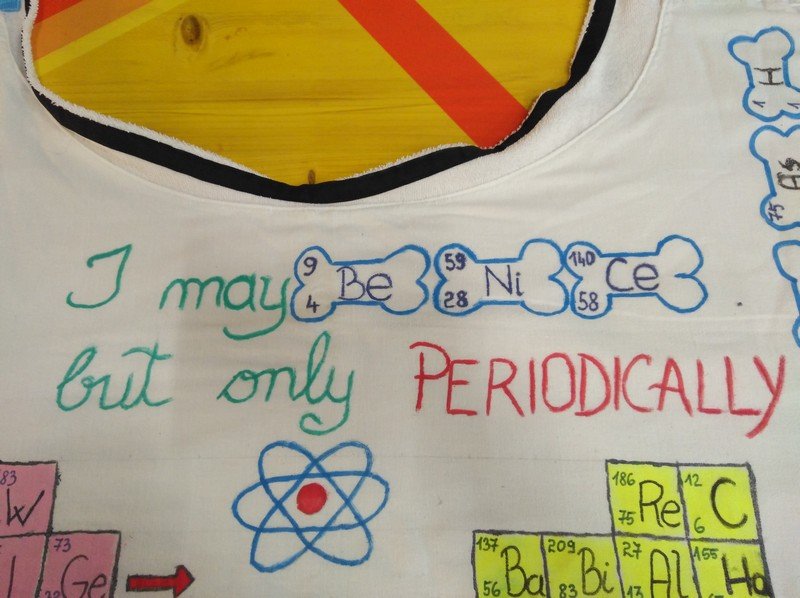 H
1 1
As
75
I may 9 4 Be 59 28 Ni 140 58 Ce
but only PERIODICALLY
83 W
186 75 Re 12 6 C
73 Ge
137 56 Ba 209 83 Bi 27 13 Al 155 Ho